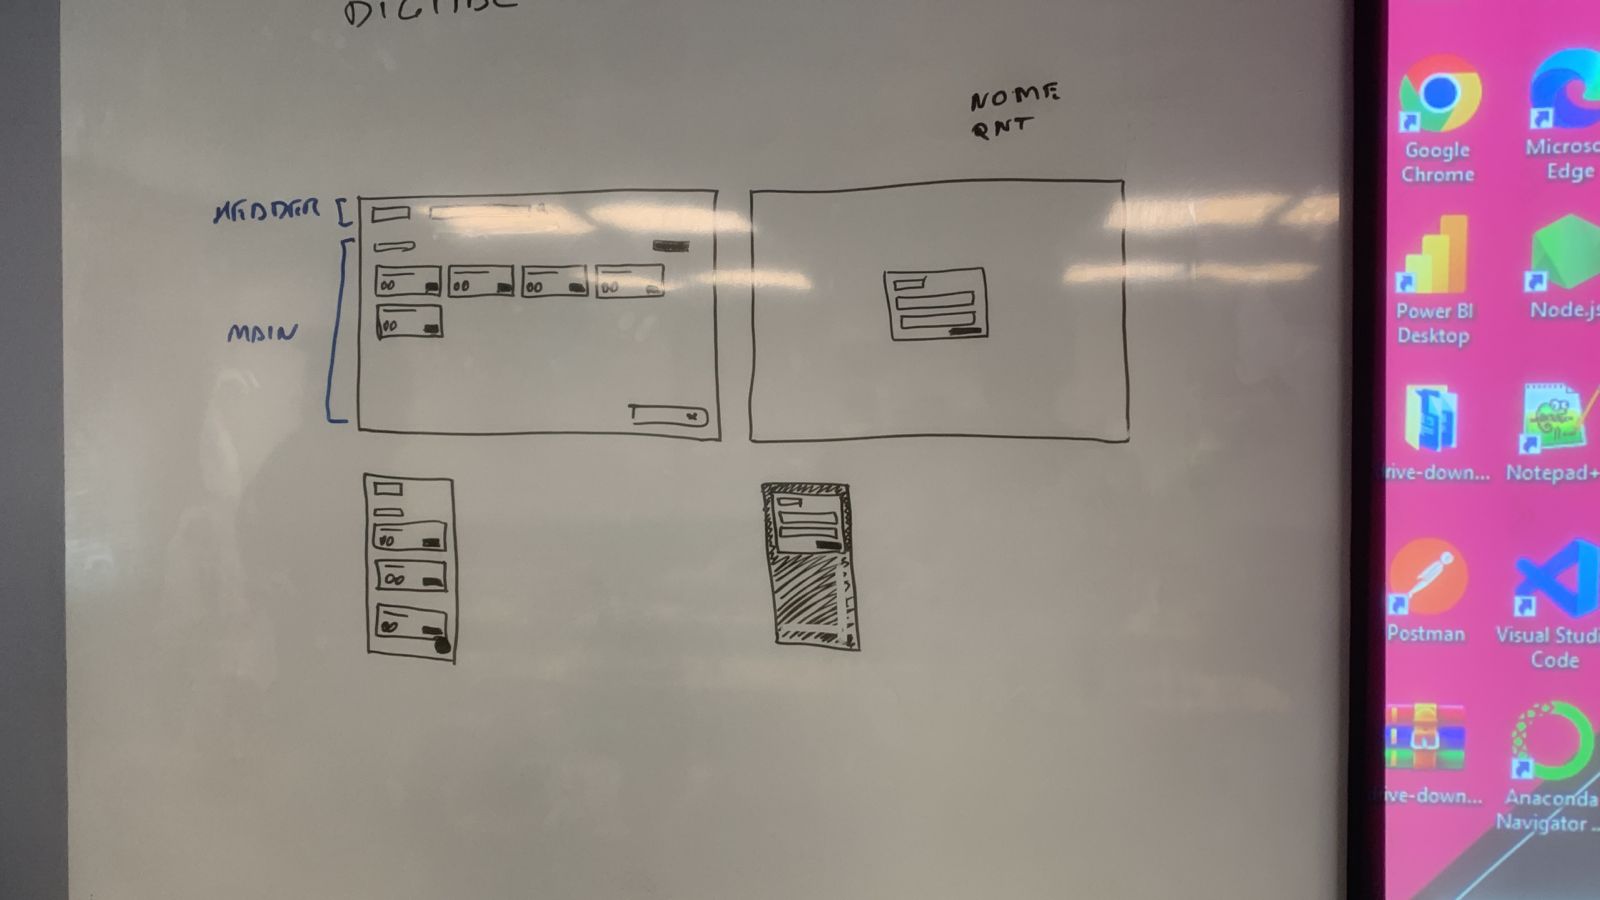 NOME
QNT
HEDDER
MAIN
Google
Chrome
Microso
Edge
Power BI
Desktop
Node.js
rive-down...
Notepad+
Postman
Visual Studi
Code
rive-down...
Anaconda
Navigator ...